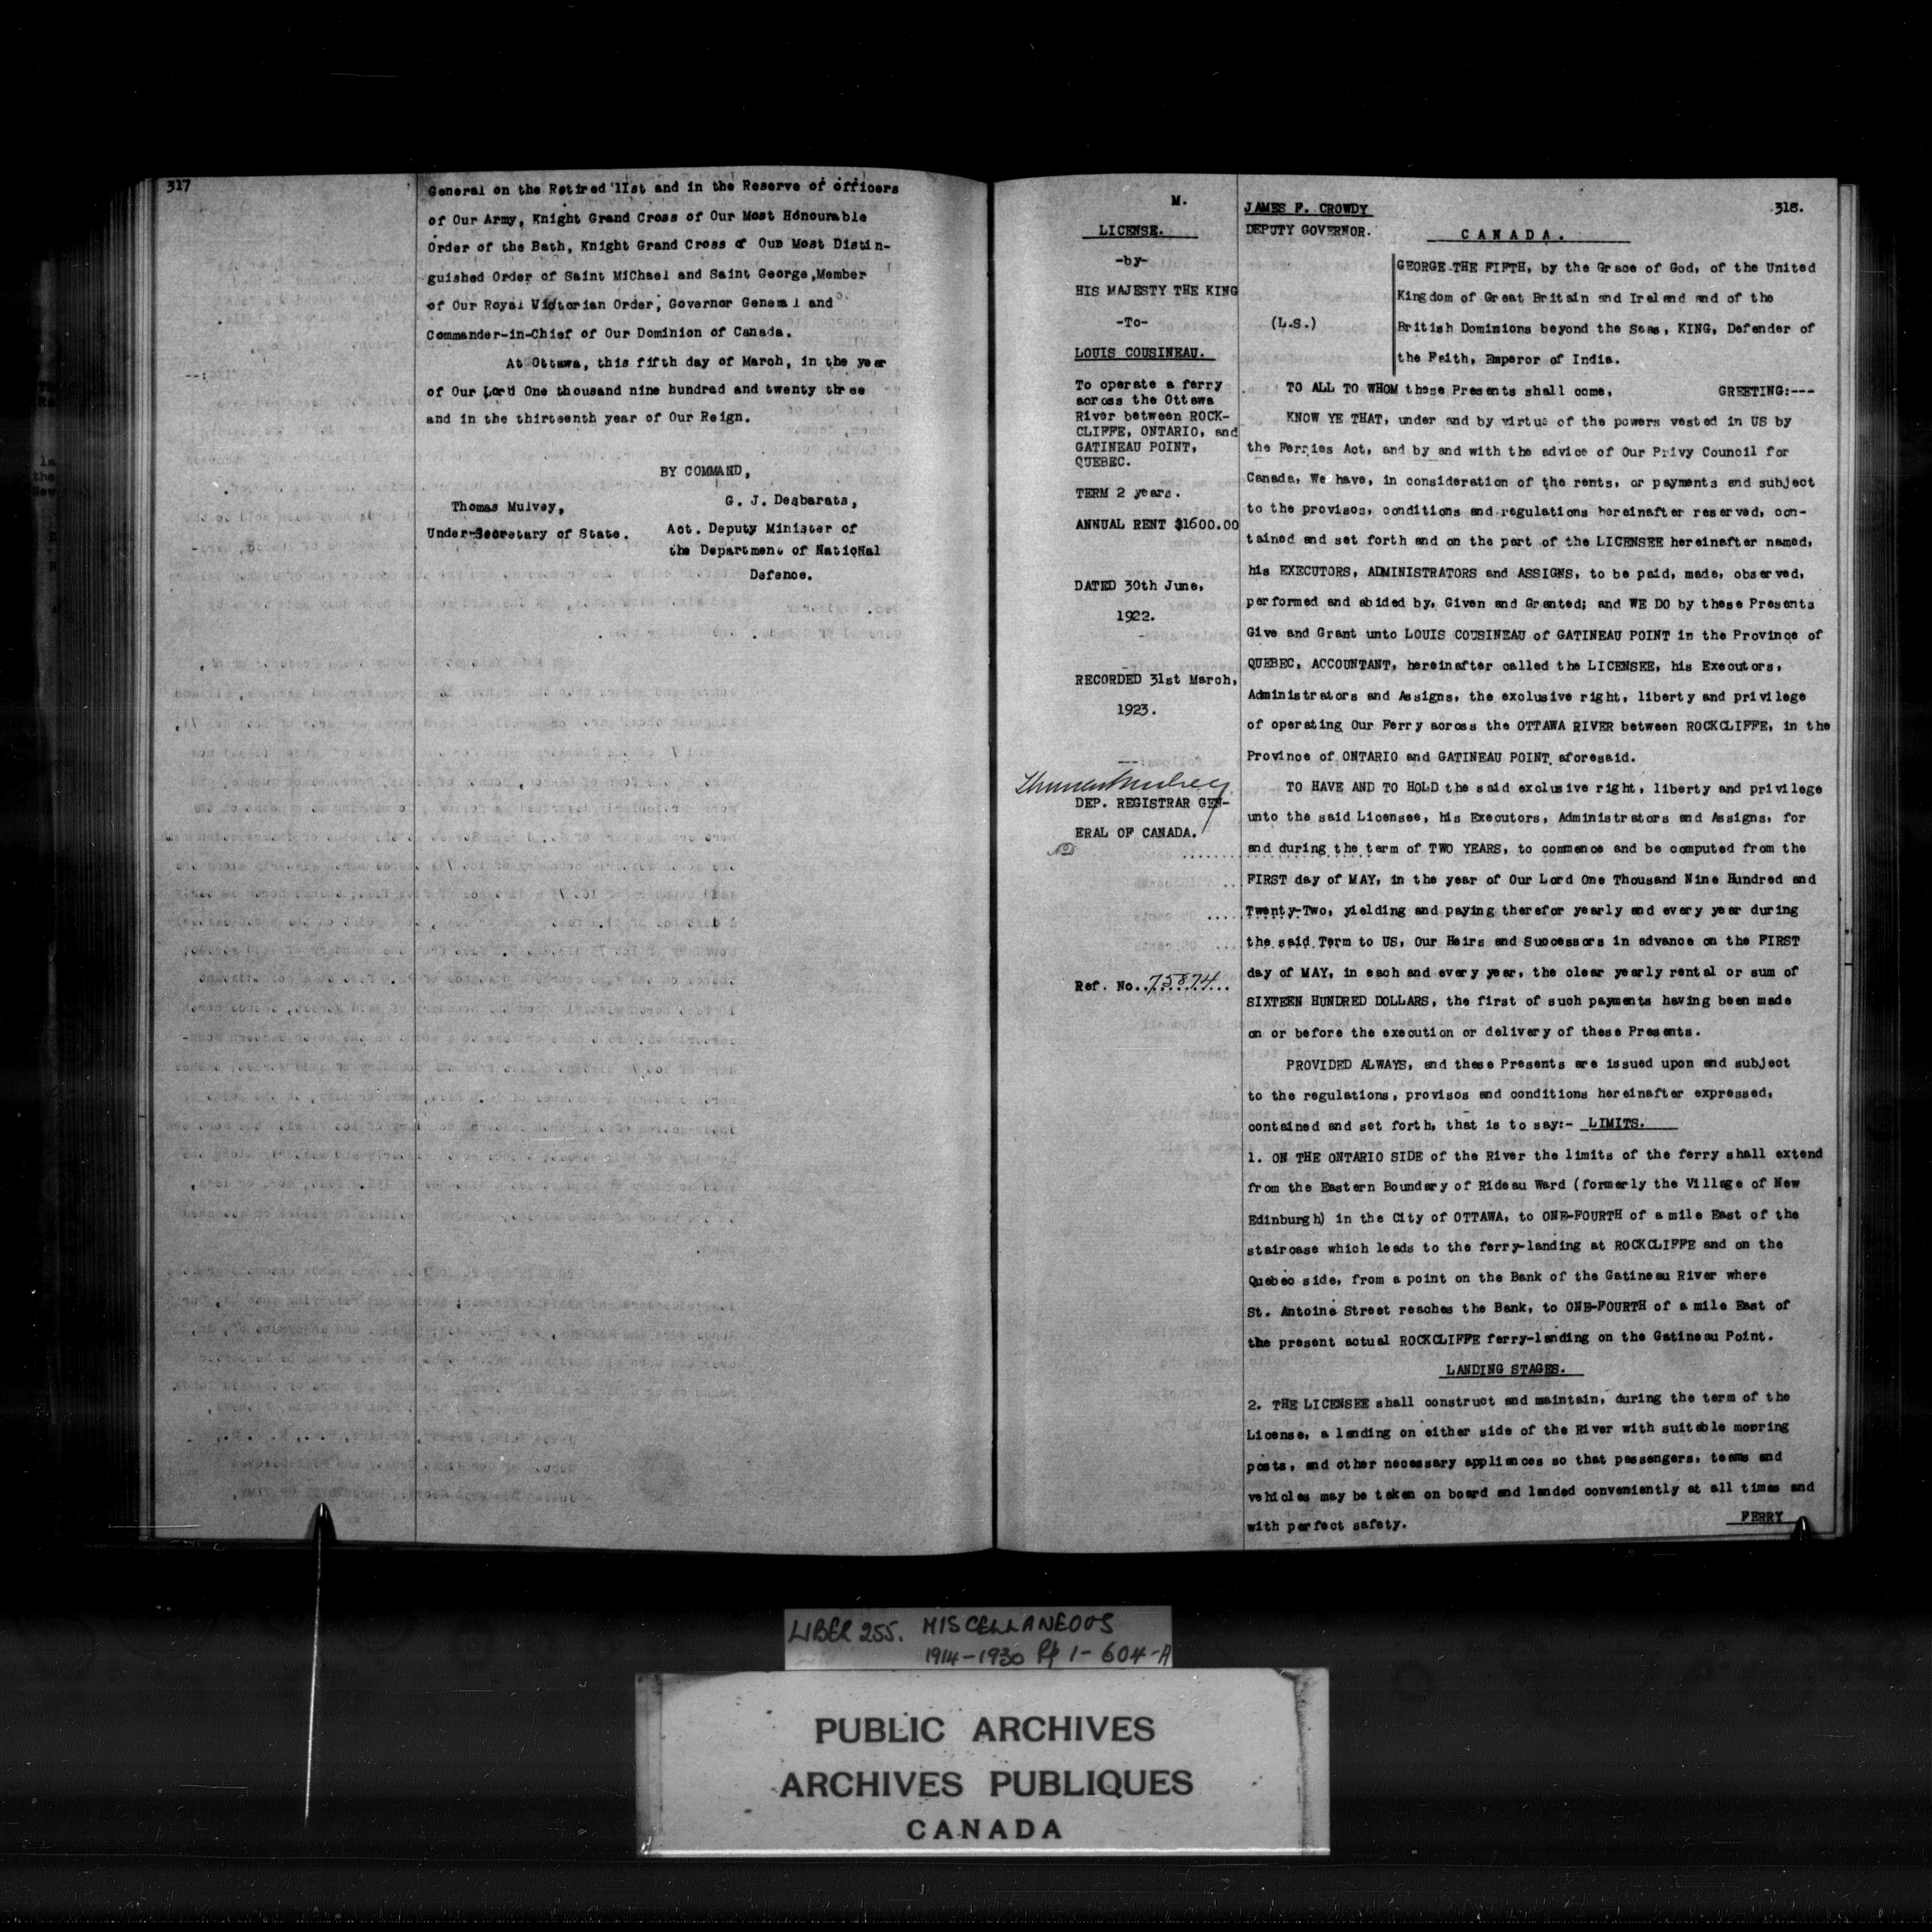 317
General on the Retired 'lIst and in the Reserve of officers
of Our Army, Knight Grand Cross of Our Most Honourable
Order of the Bath, Knight Grand Cross of Our Most Distin-
guished Order of Saint MiChael and Saint George,Member
of Our Royal Victorian Order, Governor General and
Commander-in-Chief of Our Dominion of Canada.
At Ottawa, this fifth day of March, in the year
of Our Lord One thousand nine hundred and twenty three
and in the thirteenth year of Our Reign.
BY COMMAND,
Thomas Mulvey,
Under-Secretary of State.
G. J. Desbarats,
Act. Deputy Minister of
the Department of NatioNal
Defence.
M.
LICENSE.
-by-
HIS MAJESTY THE KING
-To-
LOUIS COUSINEAU.
To operate a ferry
across the Ottawa
River between ROCK-
CLIFFE, ONTARIO, and
GATINEAU POINT,
QUEBEC.
TERM 2 years.
ANNUAL RENT $1600.00
DATED 30th June,
1922.
RECORDED 31st March,
1923.
Thomas Mulvey
DEP. REGISTRAR GEN-
ERAL OF CANADA.
Ref. No. 75874
JAMES F. CROWDY
DEPUTY GOVERNOR.
318.
CANADA.
(L.S.)
GEORGE THE FIFTH, by the Grace of God, of the United
Kingdom of Great Britain and Ireland and of the
British Dominions beyond the Seas, KING, Defender of
the Faith, Emperor of India.
TO ALL TO WHOM these Presents shall come, GREETING:---
KNOW YE THAT, under and by virtue of the powers vested in US by
the Ferries Act, and by and with the advice of Our Privy Council for
Canada, We have, in consideration of the rents, or payments and subject
to the provisos, conditions and regulations hereinafter reserved, con-
tained and set forth and on the part of the LICENSEE hereinafter named,
his EXECUTORS, ADMINISTRATORS and ASSIGNS, to be paid, made, observed,
performed and abided by, Given and Granted; and WE DO by these Presents
Give and Grant unto LOUIS COUSINEAU of GATINEAU POINT in the Province of
QUEBEC, ACCOUNTANT, hereinafter called the LICENSEE, his Executors,
Administrators and Assigns, the exclusive right, liberty and privilege
of operating Our Ferry across the OTTAWA RIVER between ROCKCLIFFE, in the
Province of ONTARIO and GATINEAU POINT aforesaid.
TO HAVE AND TO HOLD the said exclusive right, liberty and privilege
unto the said Licensee, his Executors, Administrators and Assigns, for
and during the term of TWO YEARS, to commence and be computed from the
FIRST day of MAY, in the year of Our Lord One Thousand Nine Hundred and
Twenty-Two, yielding and paying therefor yearly and every year during
the said Term to US, Our Heirs and Successors in advance on the FIRST
day of MAY, in each and every year, the clear yearly rental or sum of
SIXTEEN HUNDRED DOLLARS, the first of such payments having been made
on or before the execution or delivery of these Presents.
PROVIDED ALWAYS, and these Presents are issued upon and subject
to the regulations, provisos and conditions hereinafter expressed,
contained and set forth, that is to say:- LIMITS.
1. ON THE ONTARIO SIDE of the River the limits of the ferry shall extend
from the Eastern Boundary of Rideau Ward (formerly the Village of New
Edinburgh) in the City of OTTAWA, to ONE-FOURTH of a mile East of the
staircase which leads to the ferry-landing at ROCKCLIFFE and on the
Quebec side, from a point on the Bank of the Gatineau River where
St. Antoine Street reaches the Bank, to ONE-FOURTH of a mile East of
the present actual ROCKCLIFFE ferry-landing on the Gatineau Point.
LANDING STAGES.
2. THE LICENSEE shall construct and maintain, during the term of the
License, a landing on either side of the River with suitable mooring
posts, and other necessary appliances so that passengers, teams and
vehicles may be taken on board and landed conveniently at all times and
with perfect safety.
FERRY
LIBER 255. MISCELLANEOUS
1914-1930 Pp 1-604-A
PUBLIC ARCHIVES
ARCHIVES PUBLIQUES
CANADA